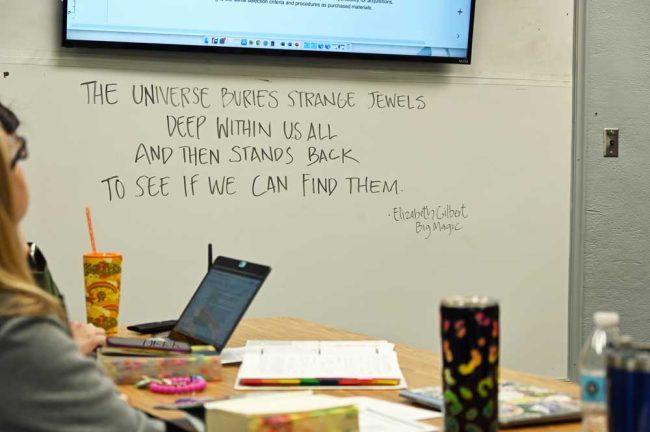 is the serial selection criteria and procedures as purchased materials.
THE UNIVERSE BURIES STRANGE JEWELS
DEEP WITHIN US ALL
AND THEN STANDS BACK
TO SEE IF WE CAN FIND THEM.
· Elizabeth Gilbert
Big Magic